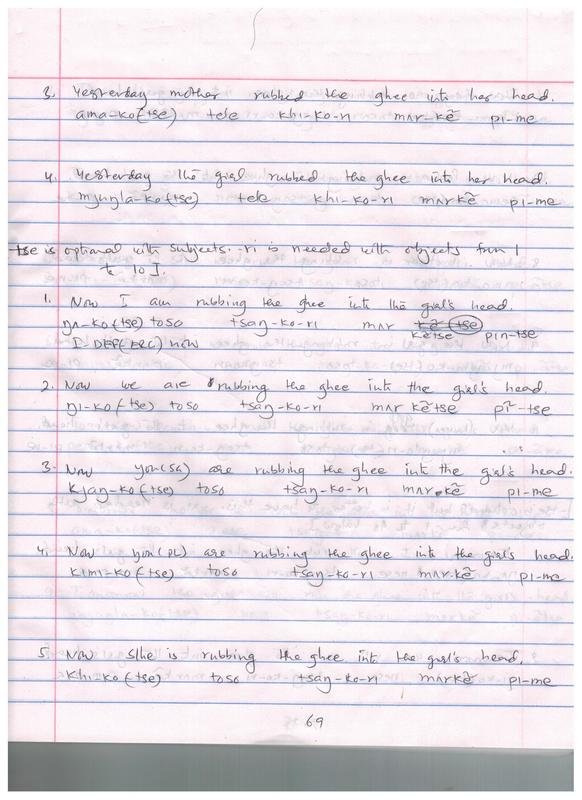 3. Yesterday mother rubbed the ghee into her head.
ama-ko(tse) tele khi-ko-ri mʌr-kẽ pi-me
4. Yesterday the girl rubbed the ghee into her head.
tele khi-ko-ri mʌrkẽ pi-me
-tse is optional with subjects. -ri is needed with objects from 1
to 10 I.
1. Now I am rubbing the ghee into the girl's head.
ŋʌ-ko(tse) toso tsaŋ-ko-ri mʌr kẽ (tse)
kẽtse pin-tse
I-DEF(ERG) now
2. Now we are rubbing the ghee into the girl's head.
ŋi-ko(tse) toso tsaŋ-ko-ri mʌr kẽtse pĩ-tse
3. Now you(SG) are rubbing the ghee into the girl's head.
kjaŋ-ko(tse) toso tsaŋ-ko-ri mʌr-kẽ pi-me
4. Now you(PL) are rubbing the ghee into the girl's head.
kimi-ko(tse) toso tsaŋ-ko-ri mʌr-kẽ pi-me
5. Now s/he is rubbing the ghee into the girl's head.
khi-ko(tse) toso tsaŋ-ko-ri mʌrkẽ pi-me
69